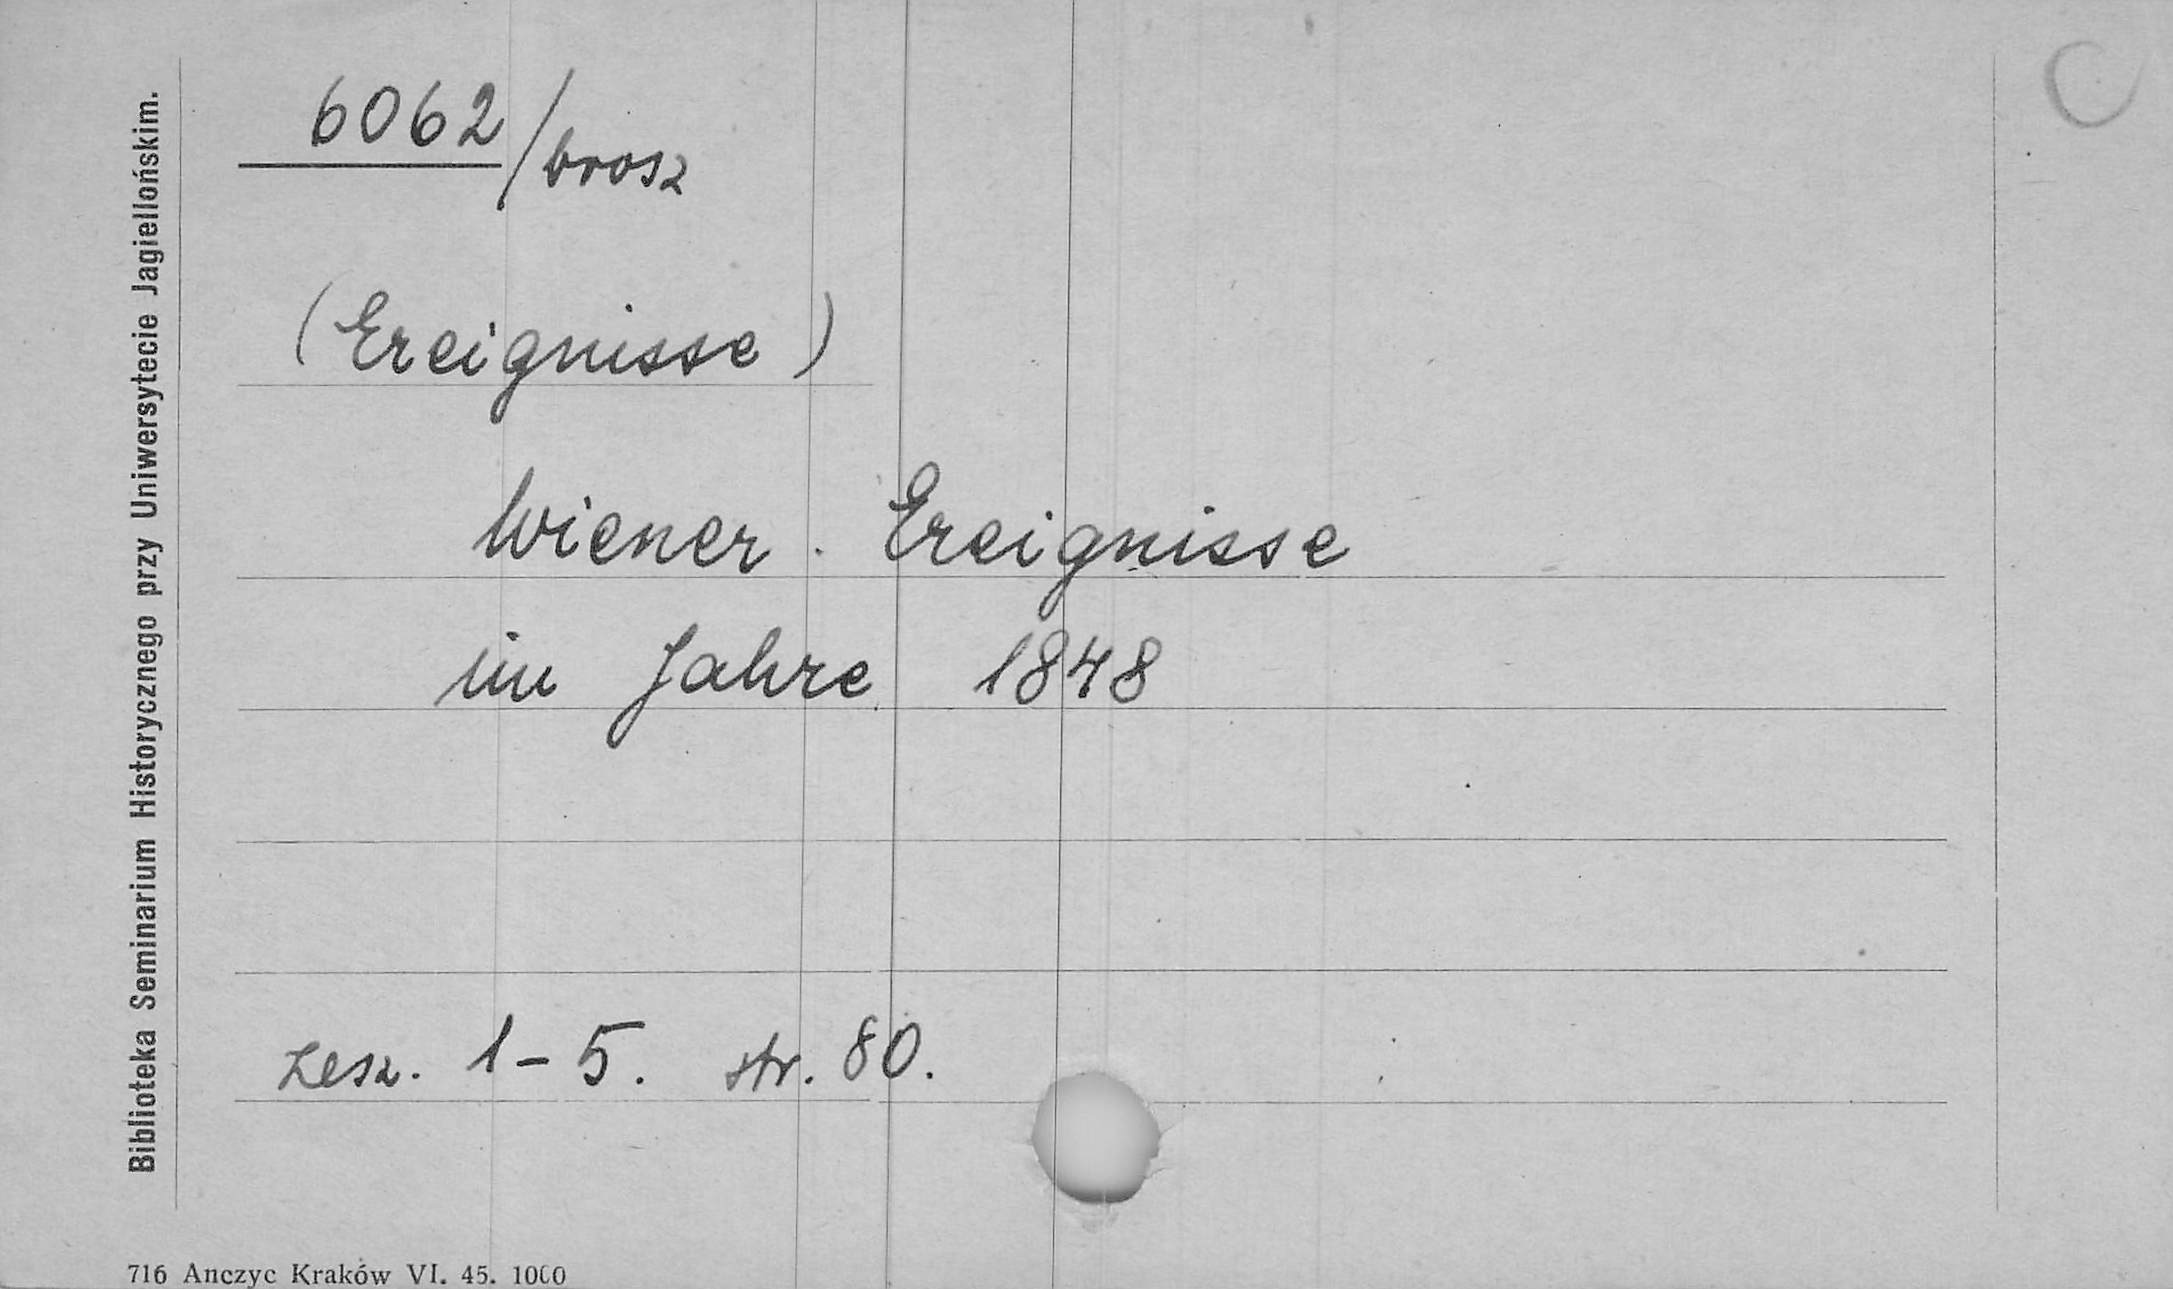 6062/brosz
(Ereignisse)
Wiener Ereignisse
im Jahre 1848
zesz. 1-5. str. 80.
Biblioteka Seminarium Historycznego przy Uniwersytecie Jagiellońskim.
716 Anczyc Kraków VI. 45. 1000